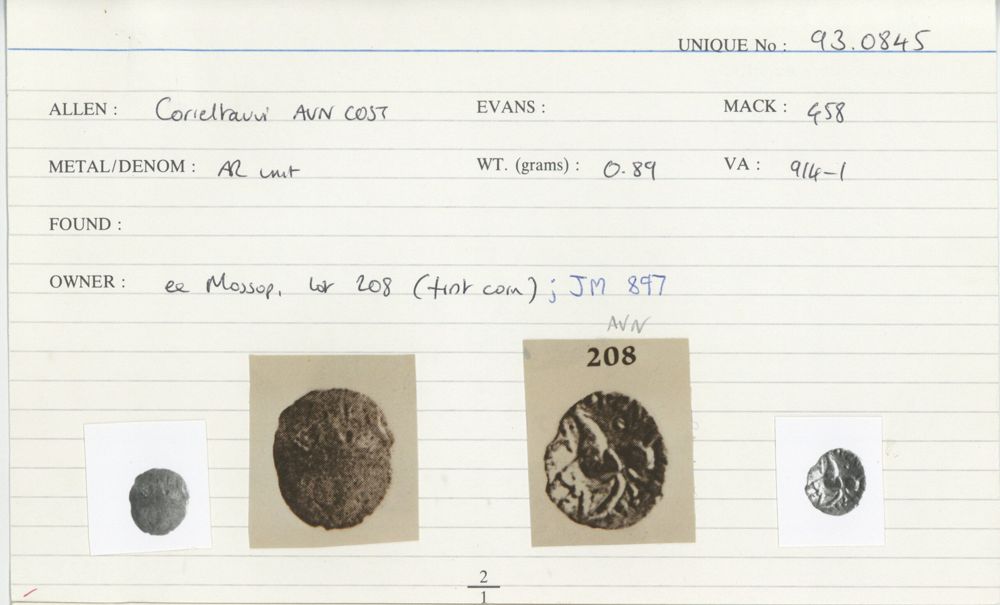 UNIQUE No : 93.0845
ALLEN : Corieltauvi AVN COST EVANS : MACK : 458
METAL/DENOM : AR unit WT. (grams) : 0.89 VA : 914-1
FOUND :
OWNER : ex Mossop, lot 208 (first coin) ; JM 897
AVN
208
2
1